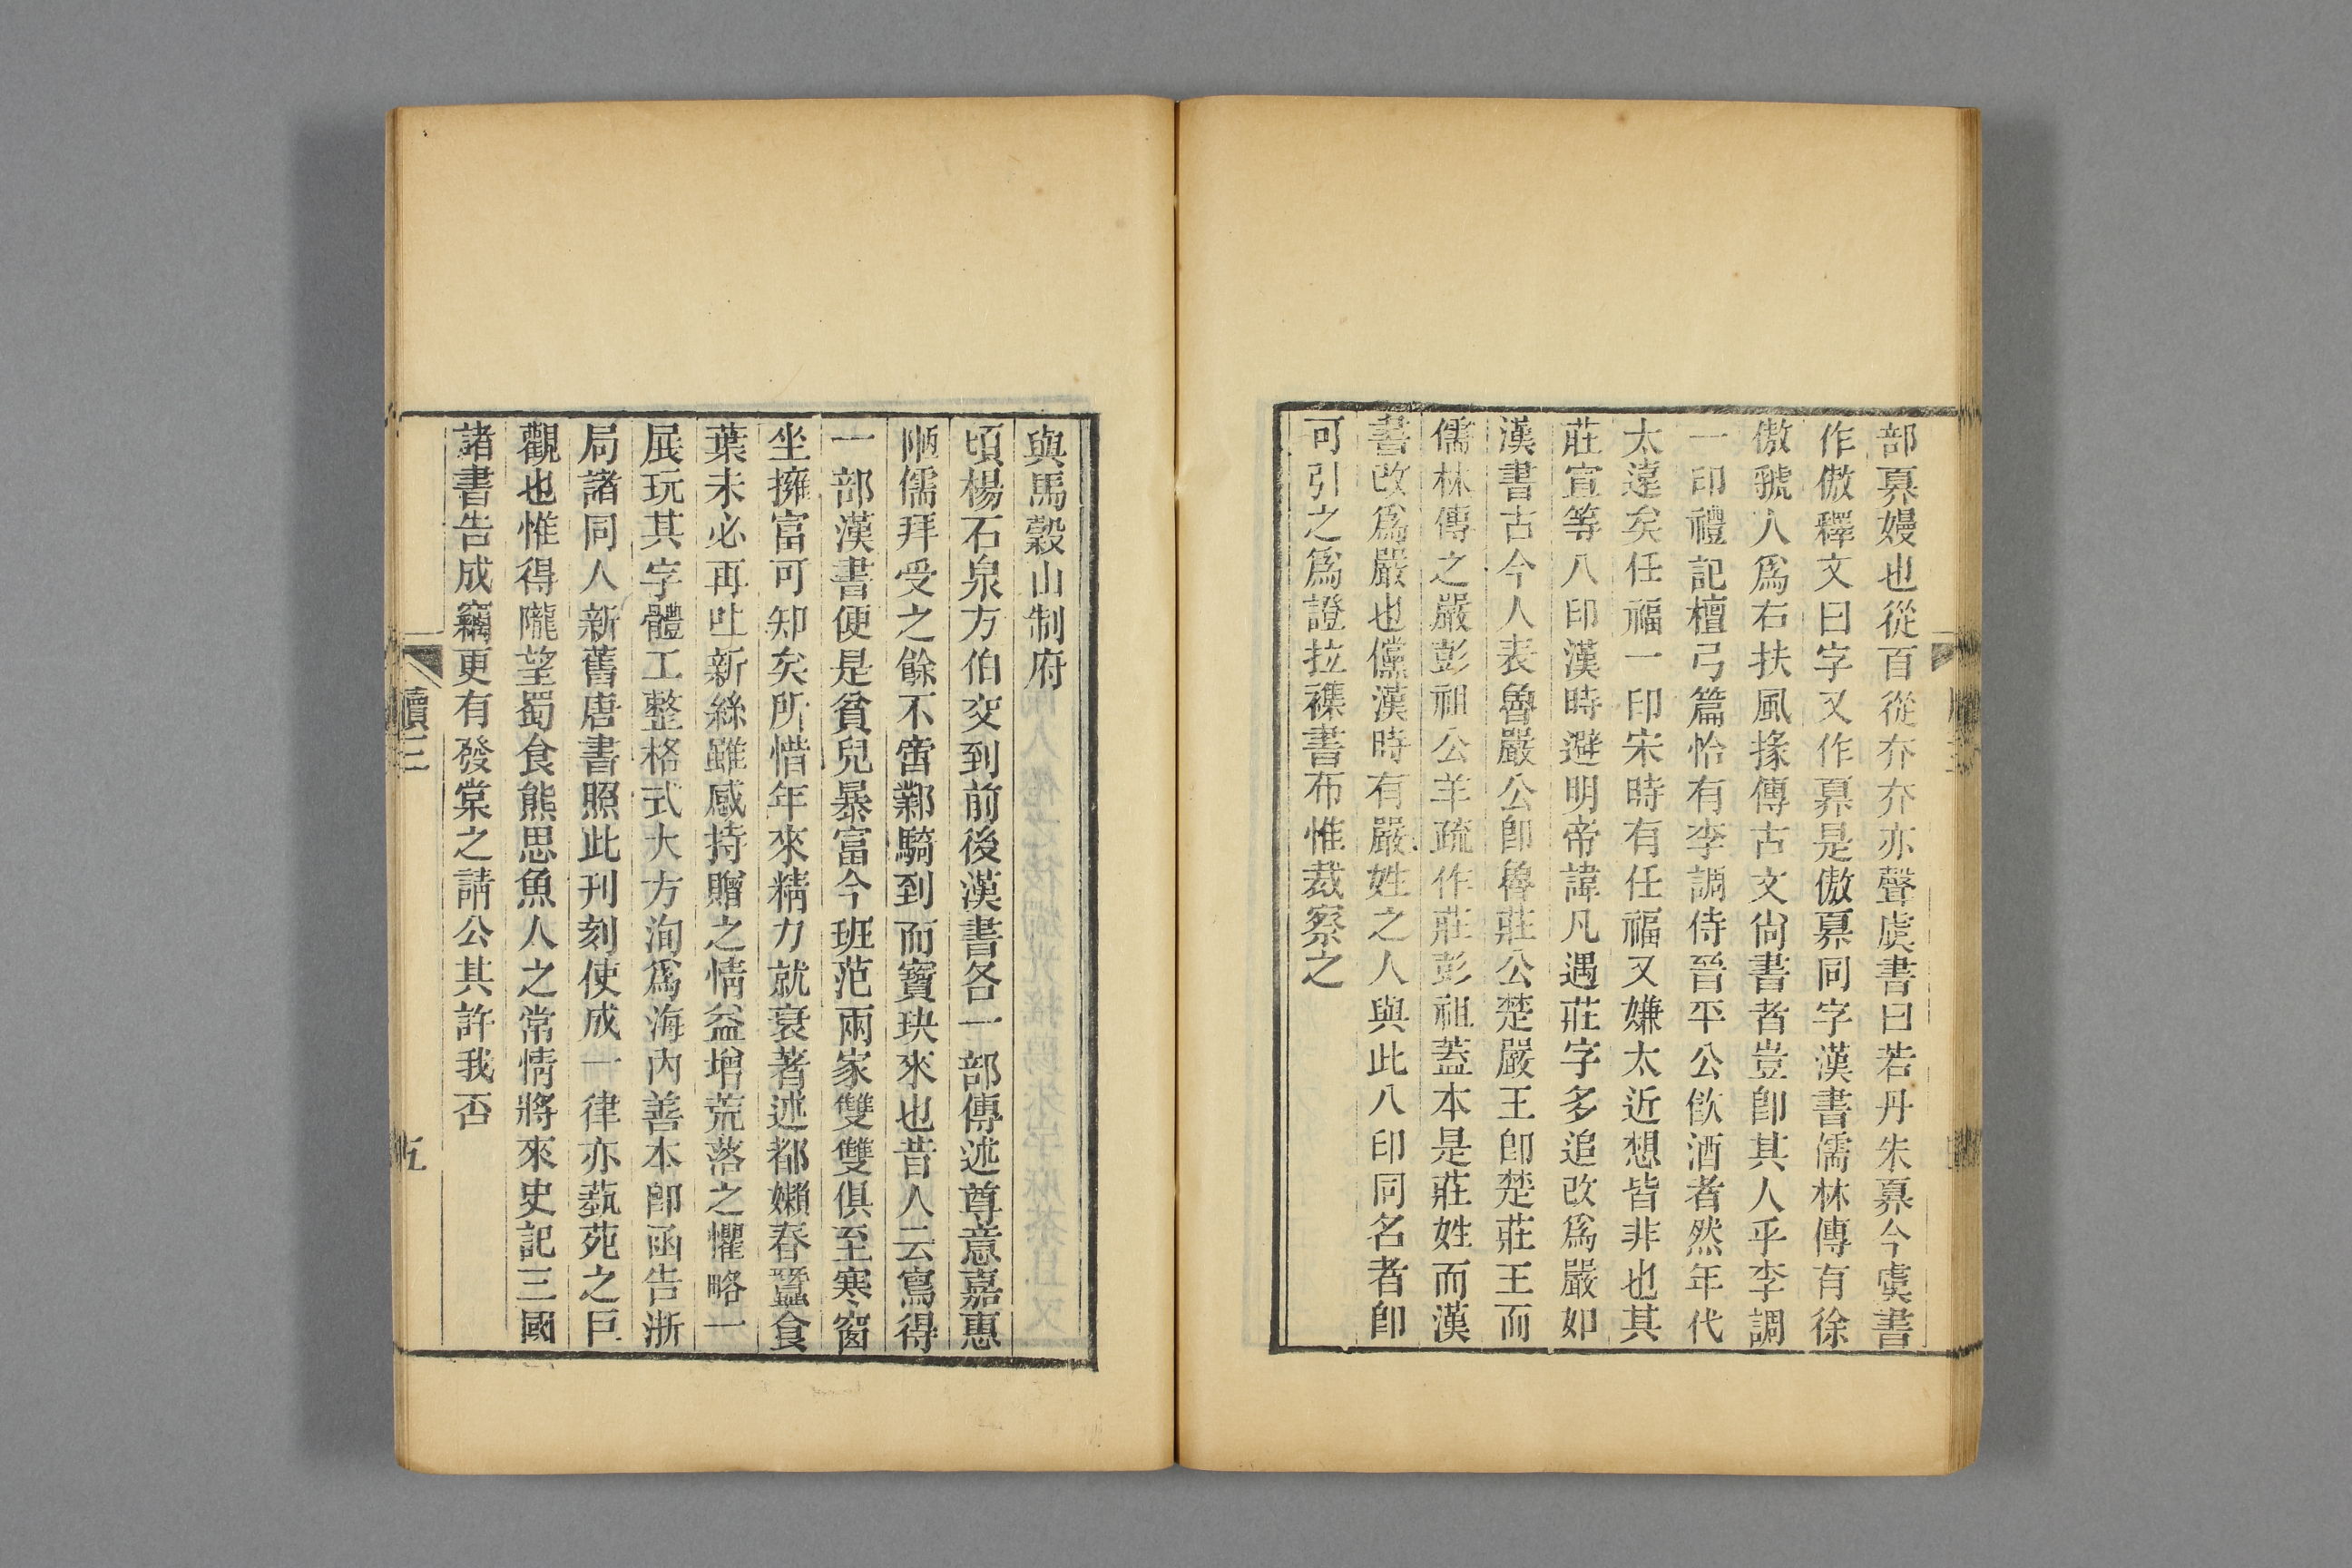 部奡嫚也從百從夰夰亦聲虞書曰若丹朱奡今虞書
作傲釋文曰字又作奡是傲奡同字漢書儒林傳有徐
傲虢人爲右扶風掾傳古文尙書者豈卽其人乎李調
一印禮記檀弓篇恰有李調侍晉平公飮酒者然年代
太遠矣任福一印宋時有任福又嫌太近想皆非也其
莊宣等八印漢時避明帝諱凡遇莊字多追改爲嚴如
漢書古今人表魯嚴公卽魯莊公楚嚴王卽楚莊王而
儒林傳之嚴彭祖公羊疏作莊彭祖蓋本是莊姓而漢
書改爲嚴也儻漢時有嚴姓之人與此八印同名者卽
可引之爲證拉襍書布惟裁察之
與馬穀山制府
頃楊石泉方伯交到前後漢書各一部傳述尊意嘉惠
陋儒拜受之餘不啻鄴騎到而寶玦來也昔人云寫得
一部漢書便是貧兒暴富今班范兩家雙雙俱至寒窗
坐擁富可知矣所惜年來精力就衰著述都嬾春蠶食
葉未必再吐新絲雖感持贈之情益增荒落之懼略一
展玩其字體工整格式大方洵爲海內善本卽函告浙
局諸同人新舊唐書照此刊刻使成一律亦蓺苑之巨
觀也惟得隴望蜀食熊思魚人之常情將來史記三國
諸書告成竊更有發棠之請公其許我否
牘三
五